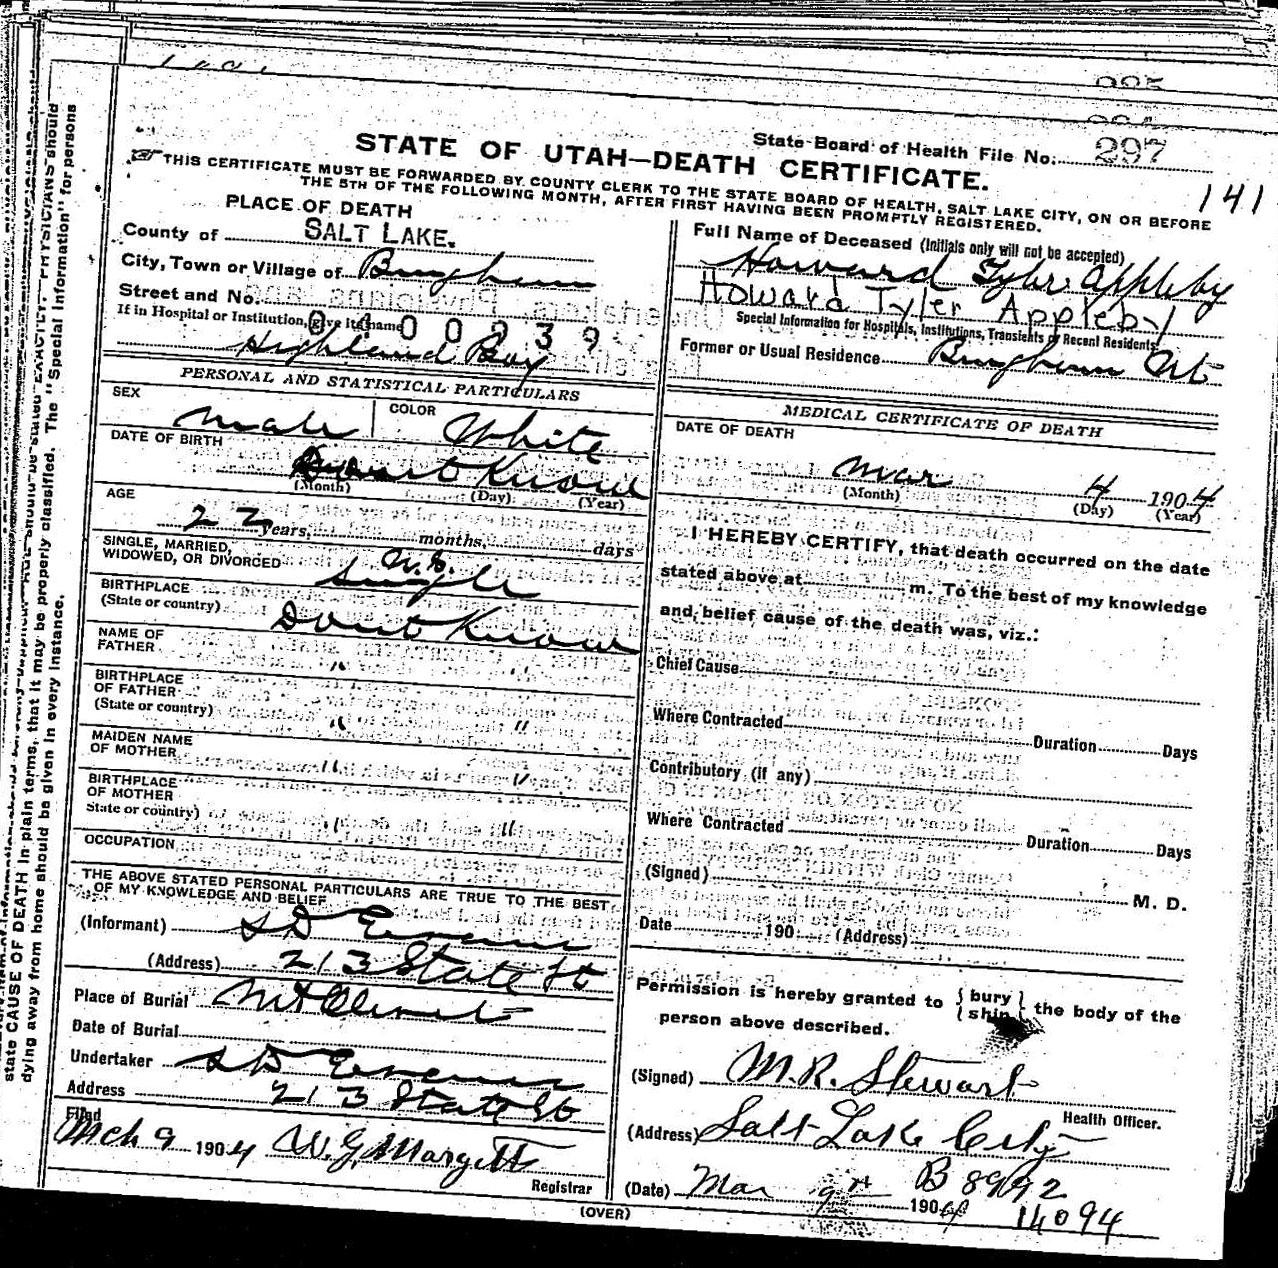 297
State Board of Health File No. 297
141
STATE OF UTAH—DEATH CERTIFICATE.
THIS CERTIFICATE MUST BE FORWARDED BY COUNTY CLERK TO THE STATE BOARD OF HEALTH, SALT LAKE CITY, ON OR BEFORE
THE 5TH OF THE FOLLOWING MONTH, AFTER FIRST HAVING BEEN PROMPTLY REGISTERED.
PLACE OF DEATH
County of SALT LAKE.
City, Town or Village of Bingham
Street and No.
If in Hospital or Institution, give its name
0400239
Highland Boy
Full Name of Deceased (Initials only will not be accepted)
Howard Tyler Appleby
Howard Tyler Appleby
Special Information for Hospitals, Institutions, Transients or Recent Residents:
Former or Usual Residence Bingham Ut
PERSONAL AND STATISTICAL PARTICULARS
SEX Male COLOR White
DATE OF BIRTH Dont Know
(Month) (Day) (Year)
AGE
22 years, months, days
SINGLE, MARRIED,
WIDOWED, OR DIVORCED Single
BIRTHPLACE
(State or country) Dont Know
NAME OF
FATHER " "
BIRTHPLACE
OF FATHER
(State or country) " "
MAIDEN NAME
OF MOTHER " "
BIRTHPLACE
OF MOTHER
State or country) " "
OCCUPATION
THE ABOVE STATED PERSONAL PARTICULARS ARE TRUE TO THE BEST
OF MY KNOWLEDGE AND BELIEF
(Informant) S D Evans
(Address) 213 State St
Place of Burial Mt Olivet
Date of Burial
Undertaker S D Evans
Address 213 State St
Filed
Mch 9 1904 W. G. Margetts
Registrar
MEDICAL CERTIFICATE OF DEATH
DATE OF DEATH
Mar 4 1904
(Month) (Day) (Year)
I HEREBY CERTIFY, that death occurred on the date
stated above at m. To the best of my knowledge
and belief cause of the death was, viz.:
Chief Cause
Where Contracted Duration Days
Contributory (if any)
Where Contracted Duration Days
(Signed) M. D.
Date 190 (Address)
Permission is hereby granted to { bury / ship } the body of the
person above described.
(Signed) M. R. Stewart
Health Officer.
(Address) Salt Lake City
B 8992
(Date) Mar 9th 1904
14094
(OVER)
state CAUSE OF DEATH in plain terms, that it may be properly classified. The "Special Information" for persons
dying away from home should be given in every instance.